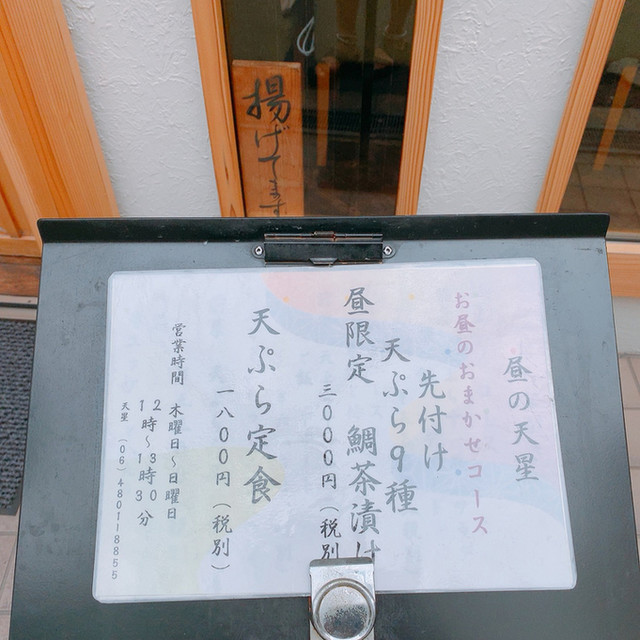 揚げてます
昼の天星
お昼のおまかせコース
先付け
天ぷら9種
昼限定 鯛茶漬け
三〇〇〇円（税別
天ぷら定食
一八〇〇円（税別）
営業時間 木曜日〜日曜日
1時〜13時30分
天星 （06）4801-8855